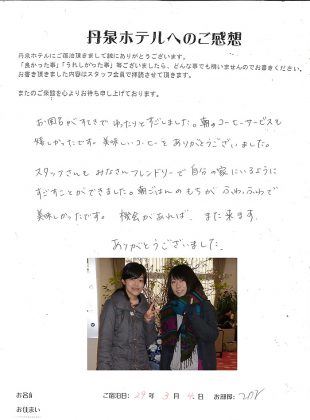 丹泉ホテルへのご感想
丹泉ホテルにご宿泊頂きまして誠にありがとうございます。
「良かった事」「うれしかった事」等ございましたら、どんな事でも構いませんのでお書きください。
お書き頂きました内容はスタッフ全員で拝読させて頂きます。
またのご来館を心よりお待ち申し上げております。
お風呂がすてきでゆったりとすごしました。朝のコーヒーサービスも
嬉しかったです。美味しいコーヒーとありがとうございました。
スタッフさんもみなさんフレンドリーで自分の家にいるように
すごすことができました。朝ごはんのもちがふわふわで
美味しかったです。機会があれば、また来ます。
ありがとうございました。
お名前
ご宿泊日: 29 年 3 月 4 日 お部屋: 208
お住まい